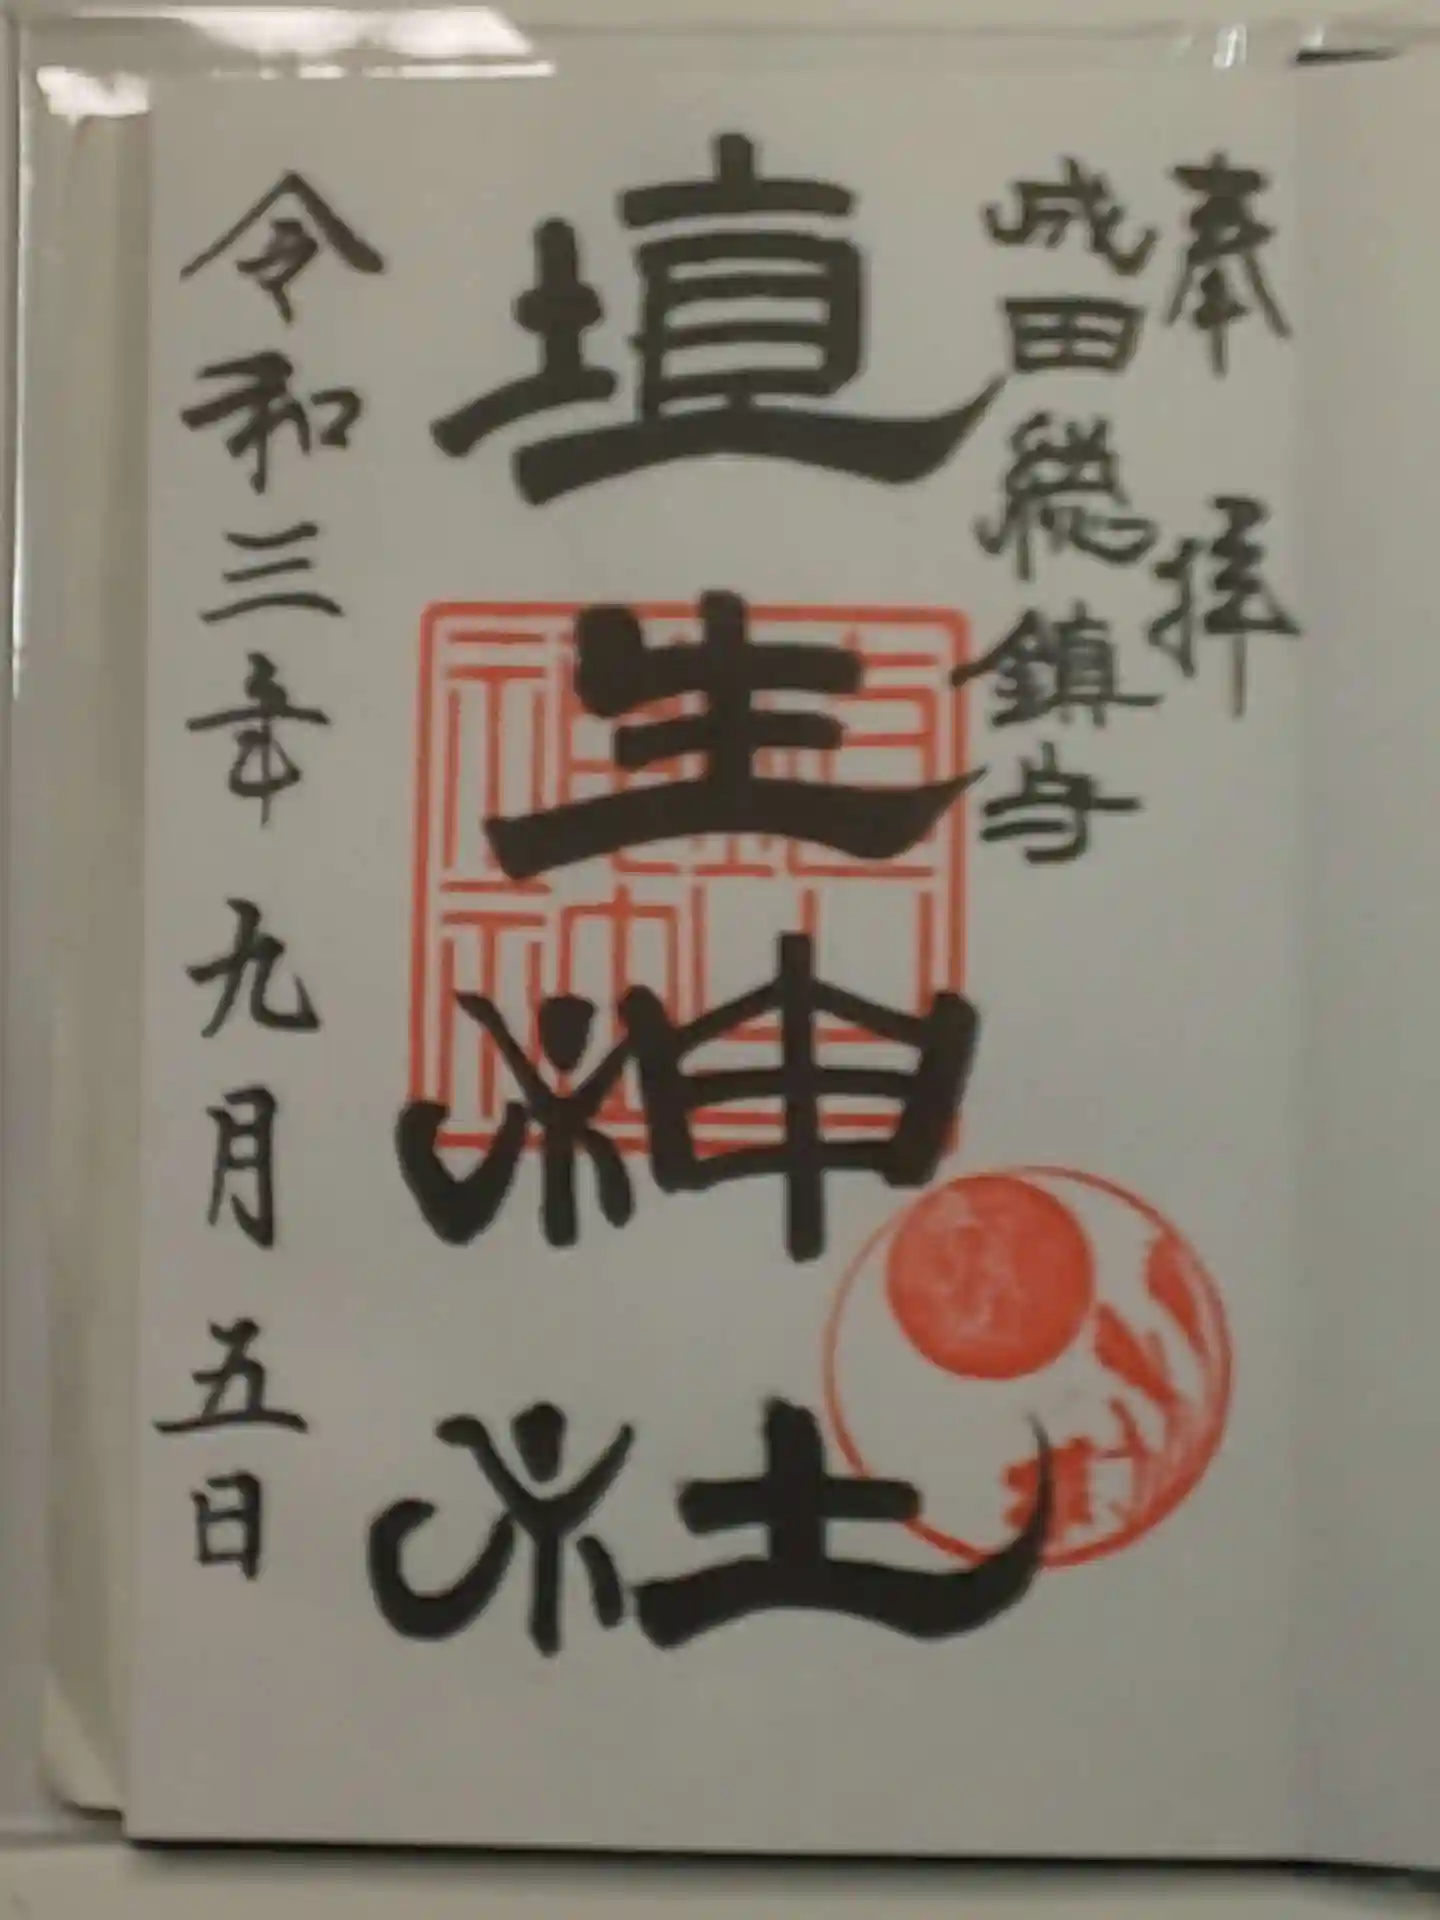 奉拝
成田総鎮守
埴生神社
令和三年九月五日